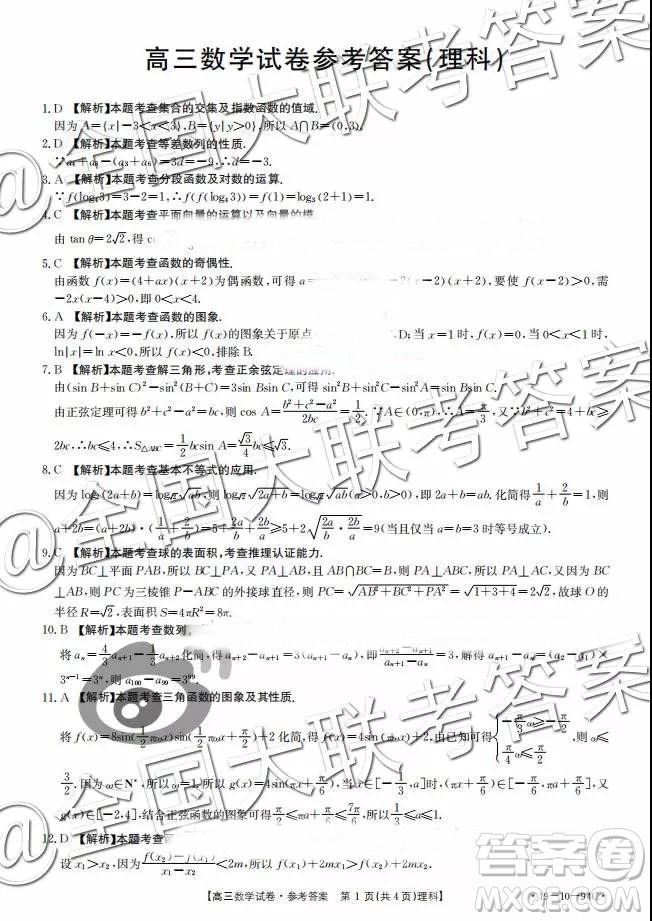 高三数学试卷参考答案(理科)
1. D 【解析】本题考查集合的交集及指数函数的值域.
因为A={x|-3<x<3},B={y|y>0},所以A∩B=(0,3).
2. D 【解析】本题考查等差数列的性质.
∵a₄+a₈-(a₃+a₆)=3d=-9,∴d=-3.
3. A 【解析】本题考查分段函数及对数的运算.
∵f(log₄3)=3-2=1,∴f(f(log₄3))=f(1)=log₃(2+1)=1.
4. C 【解析】本题考查平面向量的运算以及向量的模.
由tan θ=2√2,得
5. C 【解析】本题考查函数的奇偶性.
由函数f(x)=(4+ax)(x+2)为偶函数,可得a=-2(x-2)(x+2),要使f(2-x)>0,需
-2x(x-4)>0,即0<x<4.
6. A 【解析】本题考查函数的图象.
因为f(-x)=-f(x),所以f(x)的图象关于原点 D;当x=1时,f(x)=0,当0<x<1时,
ln|x|=ln x<0,所以f(x)<0,排除B.
7. B 【解析】本题考查解三角形,考查正余弦定理的应用.
由(sin B+sin C)²-sin²(B+C)=3sin Bsin C,可得sin²B+sin²C-sin²A=sin Bsin C.
由正弦定理可得b²+c²-a²=bc,则cos A=(b²+c²-a²)/2bc=1/2.∵A∈(0,π),∴A=π/3,又∵b²+c²=4+bc≥
2bc,∴bc≤4,∴S△ABC=1/2 bcsin A=√3/4 bc≤√3.
8. C 【解析】本题考查基本不等式的应用.
因为 所以2a+b=ab.化简得1/a+2/b=1,则
a+2b=(a+2b)·(1/a+2/b)=5+2a/b+2b/a≥5+2√(2a/b·2b/a)=9(当且仅当a=b=3时等号成立).
9. C 【解析】本题考查球的表面积,考查推理认证能力.
因为BC⊥平面PAB,所以BC⊥PA,又PA⊥AB,且AB∩BC=B,所以PA⊥ABC,所以PA⊥AC,又因为BC
⊥AB,则PC为三棱锥P-ABC的外接球直径,所以PC=√(AB²+BC²+PA²)=√(1+3+4)=2√2,故球O的
半径R=√2,表面积S=4πR²=8π.
10. B 【解析】本题考查数列
将aₙ=4/3 aₙ₊₁-1/3 aₙ₊₂化简,得 =3,解得aₙ₊₁-aₙ=(a₂-a₁)×
3ⁿ⁻¹=3ⁿ,则a₁₀₀-a₉₉=3⁹⁹.
11. A 【解析】本题考查三角函数的图象及其性质.
将f(x)=8sin(1/2 πωx)sin(1/2 πωx+π/3)+2化简,得f(x)=4sin(πωx+π/6).由已知可得 则ω≤
3/2.因为ω∈N*,所以ω=1,所以g(x)=4sin(πx+π/6),当x∈[-1/3,a]时,(πx+π/6)∈[-π/6,πa+π/6],又
g(x)∈[-2,4],结合正弦函数的图象可得π/2≤πa+π/6≤7π/6,所以1/3≤a≤1.
12. D 【解析】本题考查
设x₁>x₂,因为 <2m,所以f(x₁)-2mx₁<f(x₂)-2mx₂,记g(x)=f(x)-2mx,则g(x)
【高三数学试卷·参考答案 第1页(共4页)理科】
·19-10-94C·
@全国大联考答案
答案圈
MXQE.COM